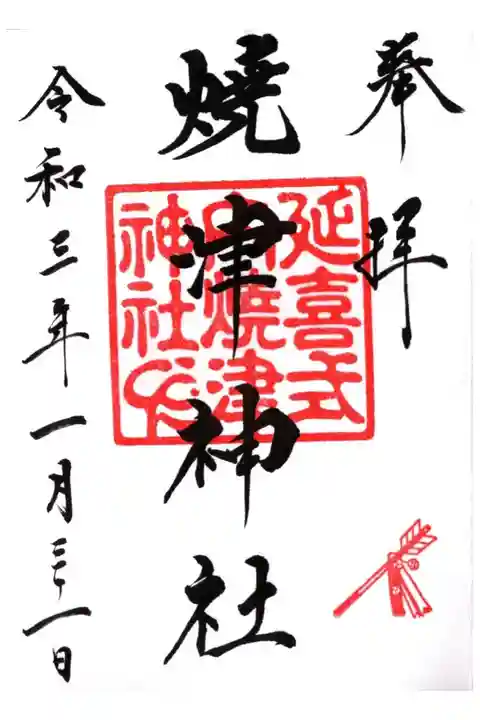 奉拝
延喜式
内燒津
神社印
燒津神社
令和三年一月三十一日